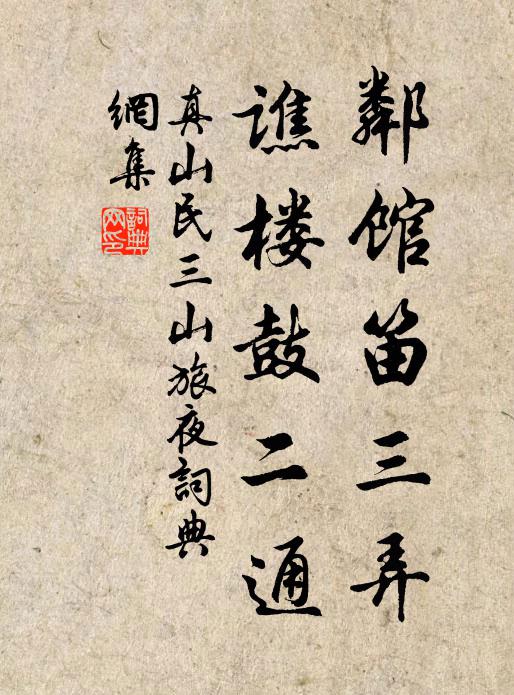 鄰馆笛三弄
譙楼鼓二通
真山民三山旅夜詞典
網集
詞典网印